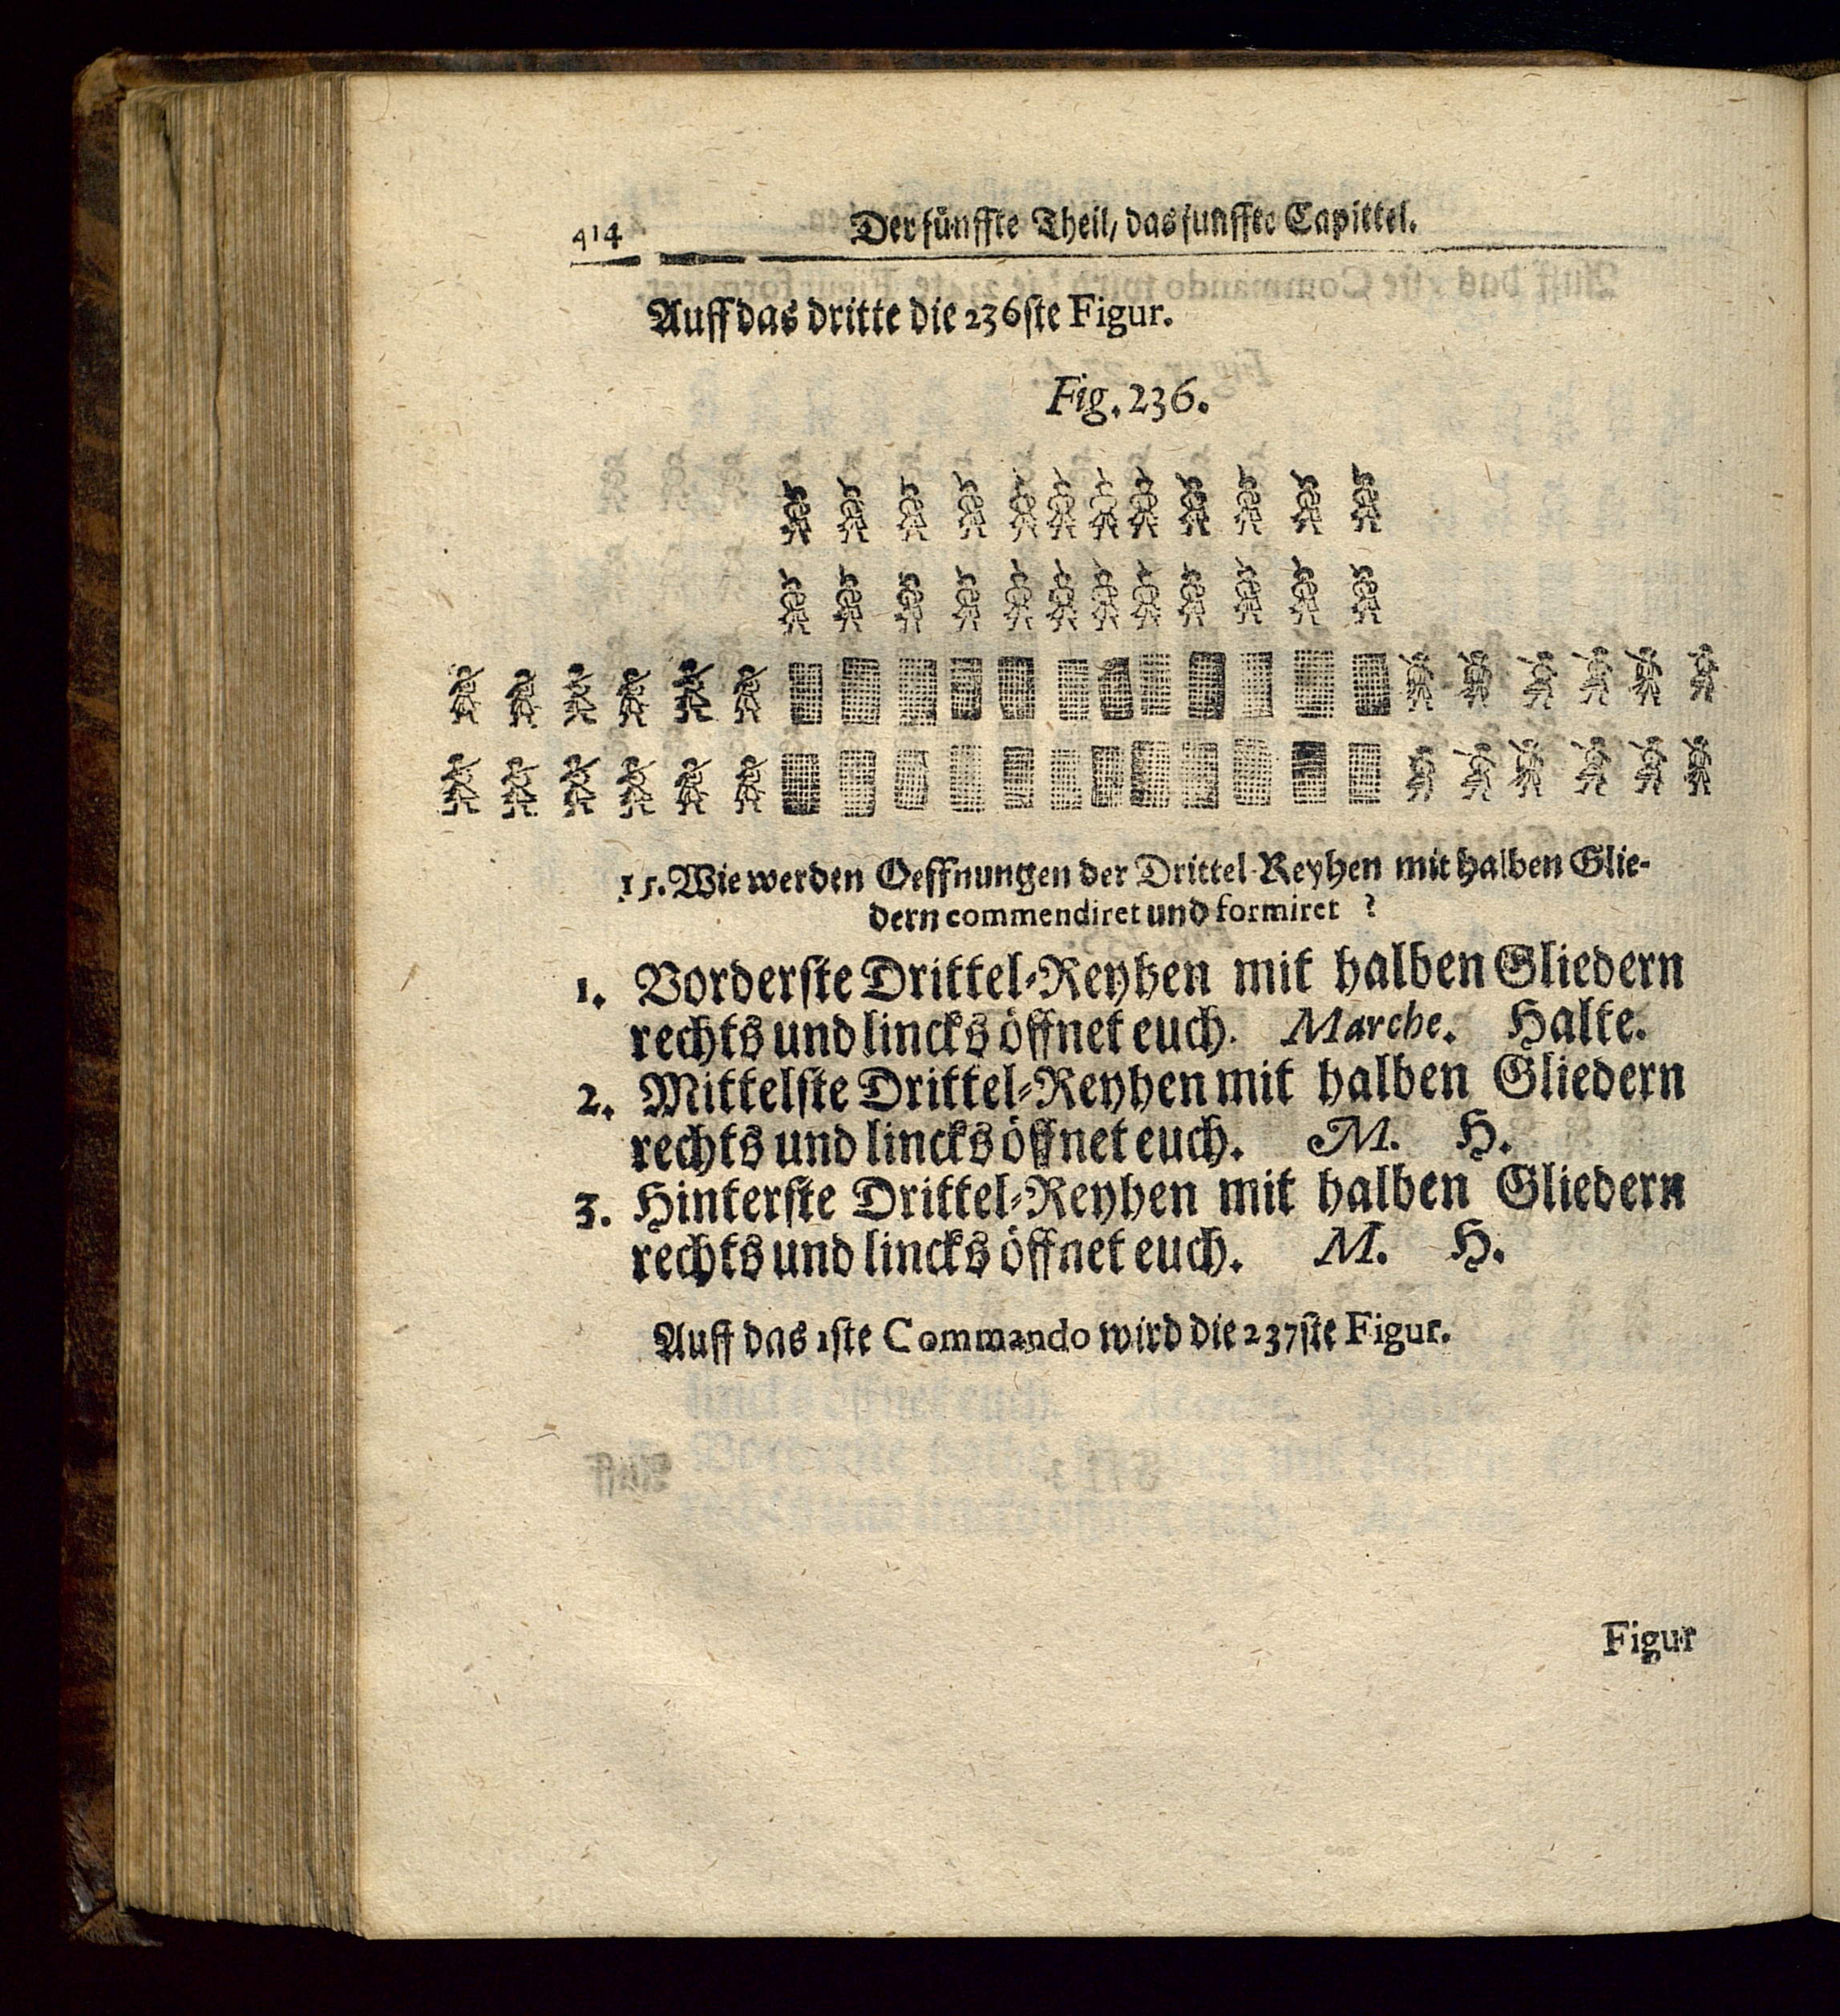 414 Der fünffte Theil, das funffte Capittel.
Auff das dritte die 236ste Figur.
Fig. 236.
15. Wie werden Oeffnungen der Drittel-Reyhen mit halben Glie-
dern commendiret und formiret ?
1. Vorderste Drittel-Reyhen mit halben Gliedern
rechts und lincks öffnet euch. Marche. Halte.
2. Mittelste Drittel-Reyhen mit halben Gliedern
rechts und lincks öffnet euch. M. H.
3. Hinterste Drittel-Reyhen mit halben Gliedern
rechts und lincks öffnet euch. M. H.
Auff das 1ste Commando wird die 237ste Figur.
Figur